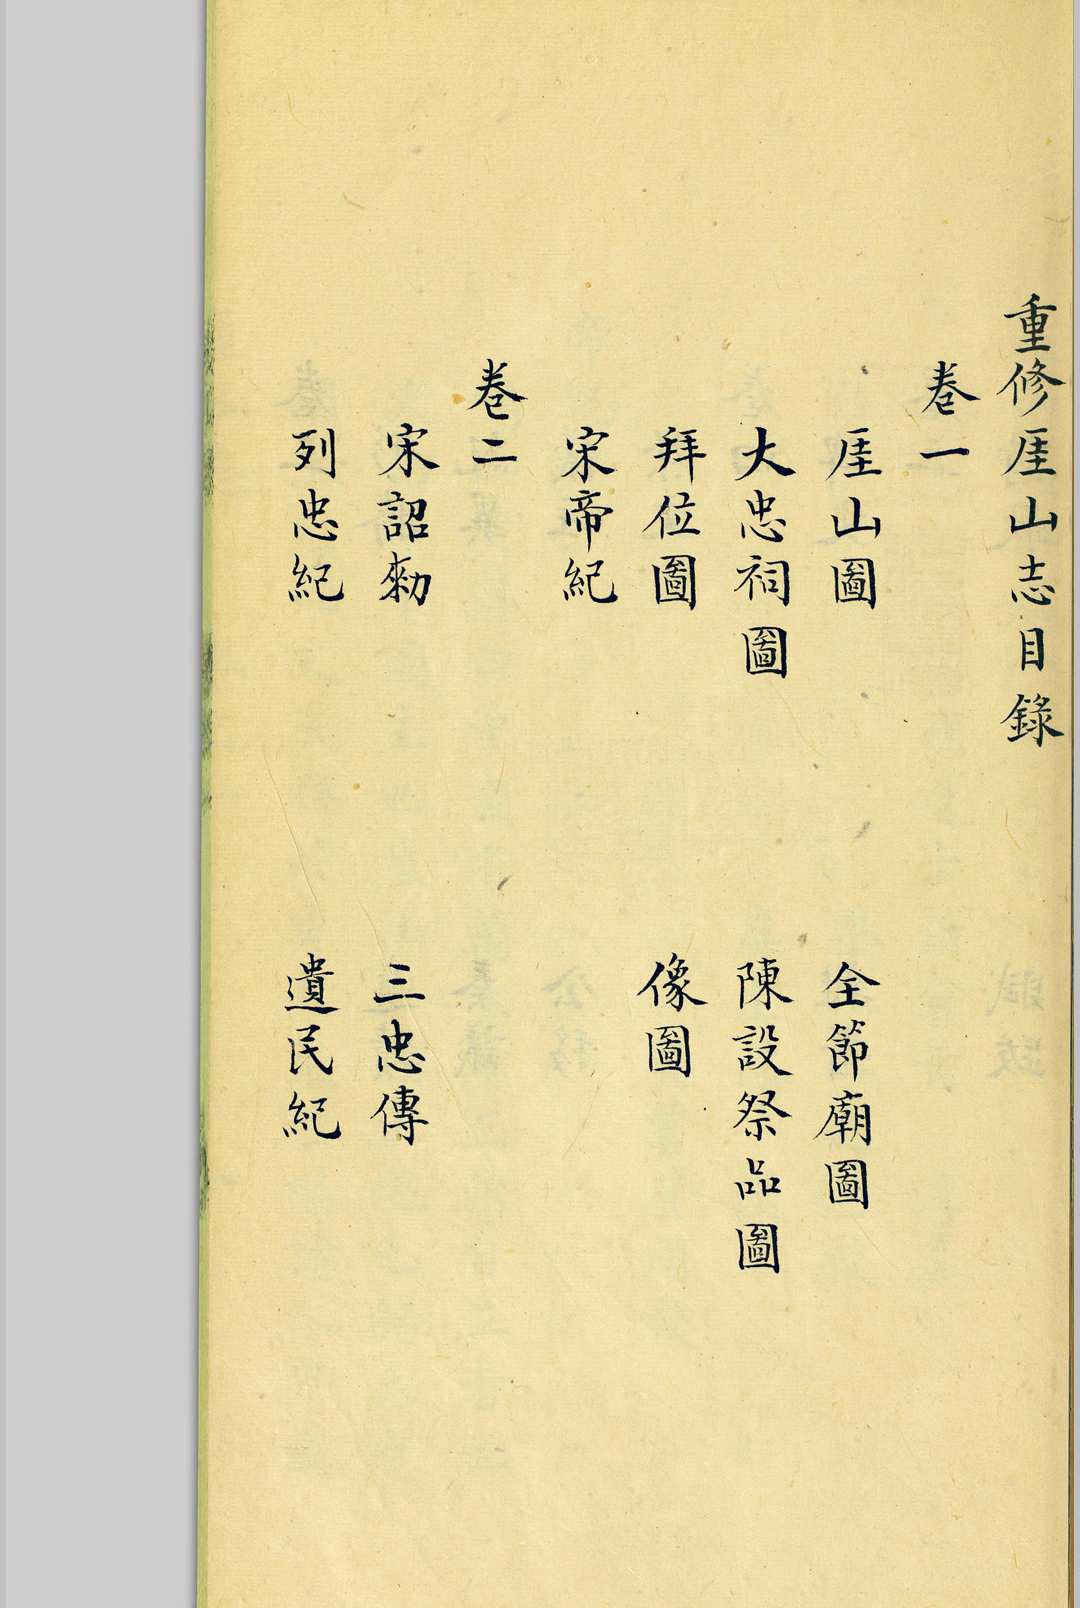 重修厓山志目錄
卷一
厓山圖　全節廟圖
大忠祠圖　陳設祭品圖
拜位圖　像圖
宋帝紀
卷二
宋詔勑　三忠傳
列忠紀　遺民紀